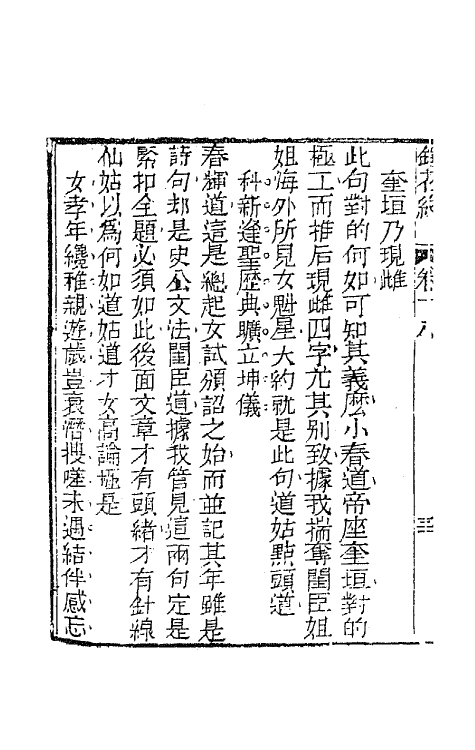 鏡花緣 卷十八 三
奎垣乃現雌
此句對的何如可知其義麽小春道帝座奎垣對的
極工而推后現雌四字尤其別致據我揣奪閨臣姐
姐海外所見女魁星大約就是此句道姑點頭道
科新逢聖歷典曠立坤儀
春輝道這是總起女試頒詔之始而並記其年雖是
詩句却是史公文法閨臣道據我管見這兩句定是
緊扣全題必須如此後面文章才有頭緒才有針線
仙姑以爲何如道姑道才女高論極是
女孝年纔稚親遊戲豈衰潛搜嗟未遇結伴感忘